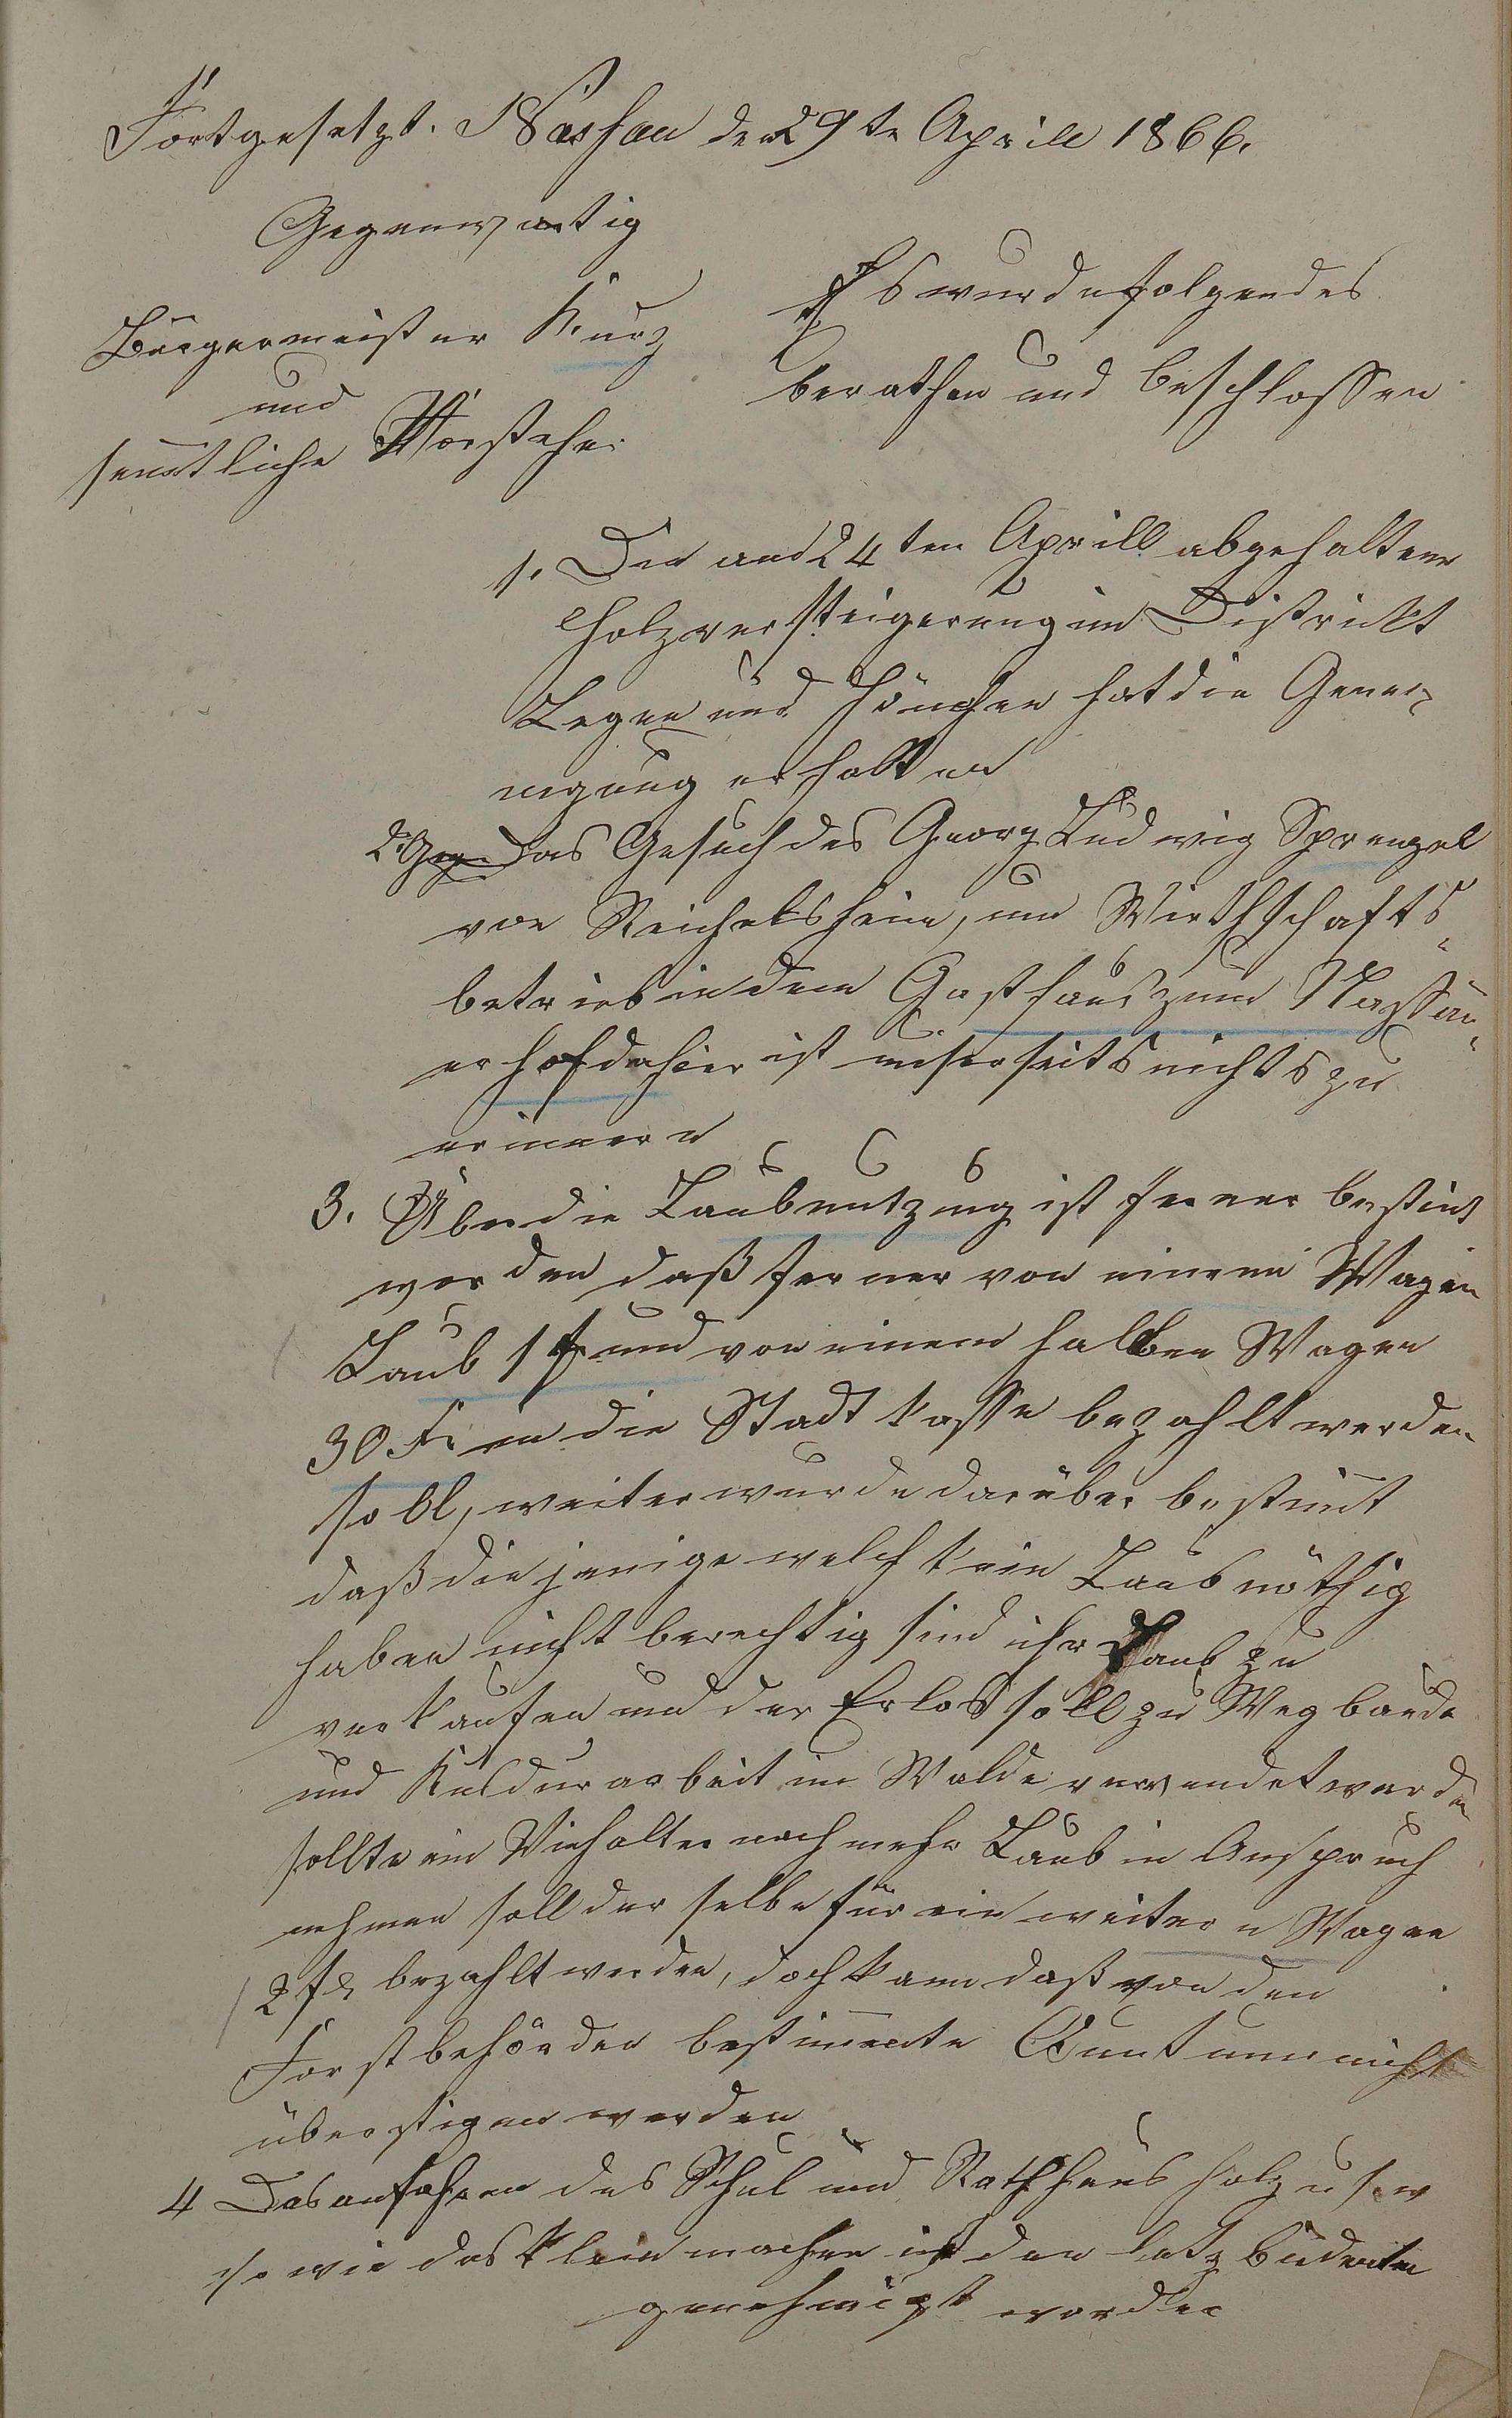 Fortgesetzt. Nassau den 29te Aprill 1866.
Gegenwartig
Bürgermeister Kurz
und
sematliche Vorsteher
Es wurde folgendes
berathen und beschlossen
1. Die am 24ten Aprill abgehaltene
Holzversteigerung im Districkt
Legen und Hönchen hat die Geneh
migung erhalten
2. Das Gesuch des Georg Ludwig Sprengel
von Reichelsheim, um Wirthschafts
betrieb in dem Gasthaus zum Nassau
er hof dahier ist unserseits nichts zu
erinnern
3. Über die Laubnutzung ist ferner bestimt
worden daß ferner von einem Wagen
Laub 1 f und von einem halben Wagen
30 Kr in die Stadtkasse bezahlt werden
soll, weiter wurde darüber bestimt
daß diejenige welch kein Laub nöthig
haben nicht berechtig sind ihr Laub zu
verkaufen und der Erlos soll zu Wegbaude
und Kuldurarbeit im Walde verwendet werden
sollte ein Viehalter noch mehr Laub in Anspruch
nehmen soll der selbe für ein weitern Wagen
2 fl bezahlt werden, doch kann daß von den
Forstbehörden bestimmte Quantum nicht
überstigen werden
4 Das anfahren des Schul und Rathhaus holz u s. w
so wie das klein machen ist den letzbiedenten
genehmigt worden